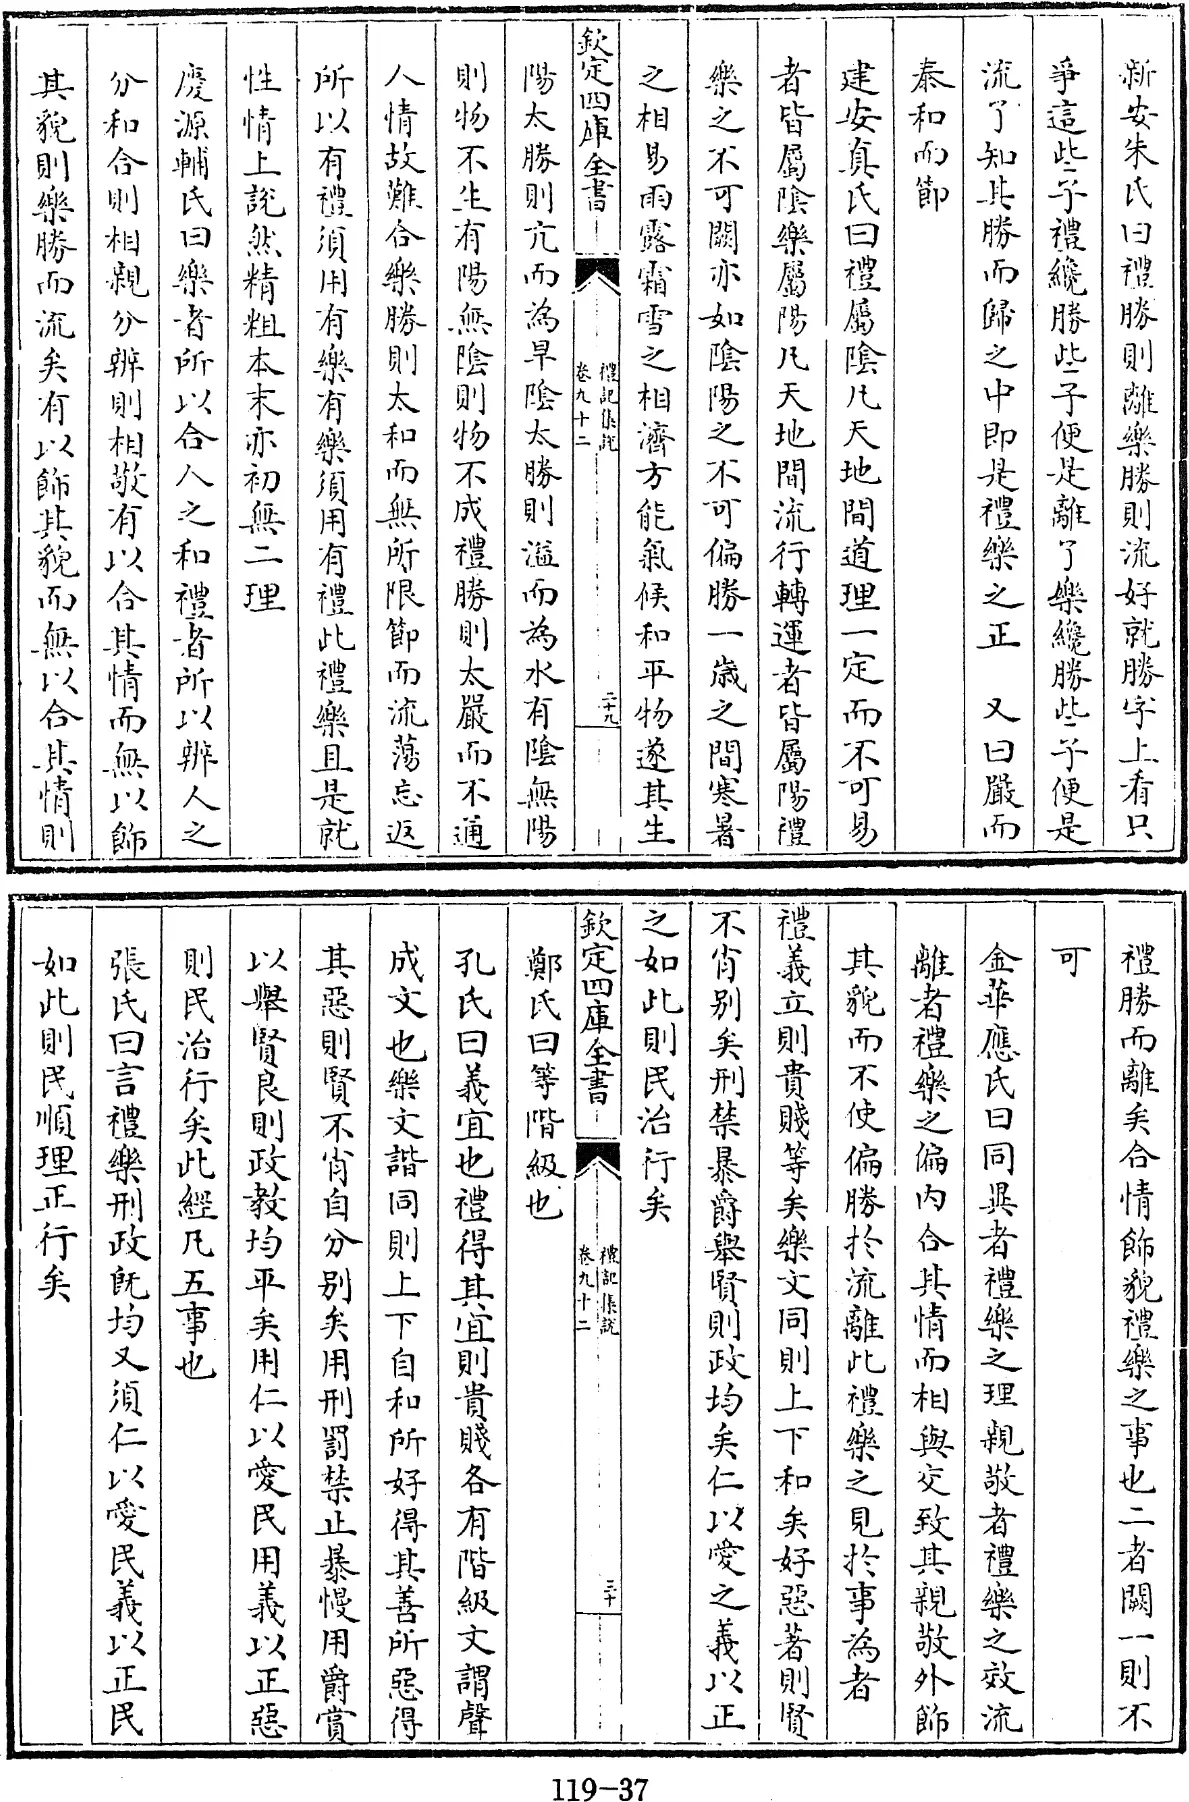 新安朱氏曰禮勝則離樂勝則流好就勝字上看只
爭這些子禮纔勝些子便是離了樂纔勝些子便是
流了知其勝而歸之中即是禮樂之正　又曰嚴而
泰和而節
建安真氏曰禮屬陰凡天地間道理一定而不可易
者皆屬陰樂屬陽凡天地間流行轉運者皆屬陽禮
樂之不可闕亦如陰陽之不可偏勝一歲之間寒暑
之相易雨露霜雪之相濟方能氣候和平物遂其生
欽定四庫全書
禮記集說
卷九十二
二十九
陽太勝則亢而為旱陰太勝則溢而為水有陰無陽
則物不生有陽無陰則物不成禮勝則太嚴而不通
人情故難合樂勝則太和而無所限節而流蕩忘返
所以有禮須用有樂有樂須用有禮此禮樂且是就
性情上說然精粗本末亦初無二理
慶源輔氏曰樂者所以合人之和禮者所以辨人之
分和合則相親分辨則相敬有以合其情而無以飾
其貌則樂勝而流矣有以飾其貌而無以合其情則
禮勝而離矣合情飾貌禮樂之事也二者闕一則不
可
金華應氏曰同異者禮樂之理親敬者禮樂之效流
離者禮樂之偏內合其情而相與交致其親敬外飾
其貌而不使偏勝於流離此禮樂之見於事為者
禮義立則貴賤等矣樂文同則上下和矣好惡著則賢
不肖別矣刑禁暴爵舉賢則政均矣仁以愛之義以正
之如此則民治行矣
欽定四庫全書
禮記集說
卷九十二
三十
鄭氏曰等階級也
孔氏曰義宜也禮得其宜則貴賤各有階級文謂聲
成文也樂文諧同則上下自和所好得其善所惡得
其惡則賢不肖自分別矣用刑罰禁止暴慢用爵賞
以舉賢良則政教均平矣用仁以愛民用義以正惡
則民治行矣此經凡五事也
張氏曰言禮樂刑政既均又須仁以愛民義以正民
如此則民順理正行矣
119-37